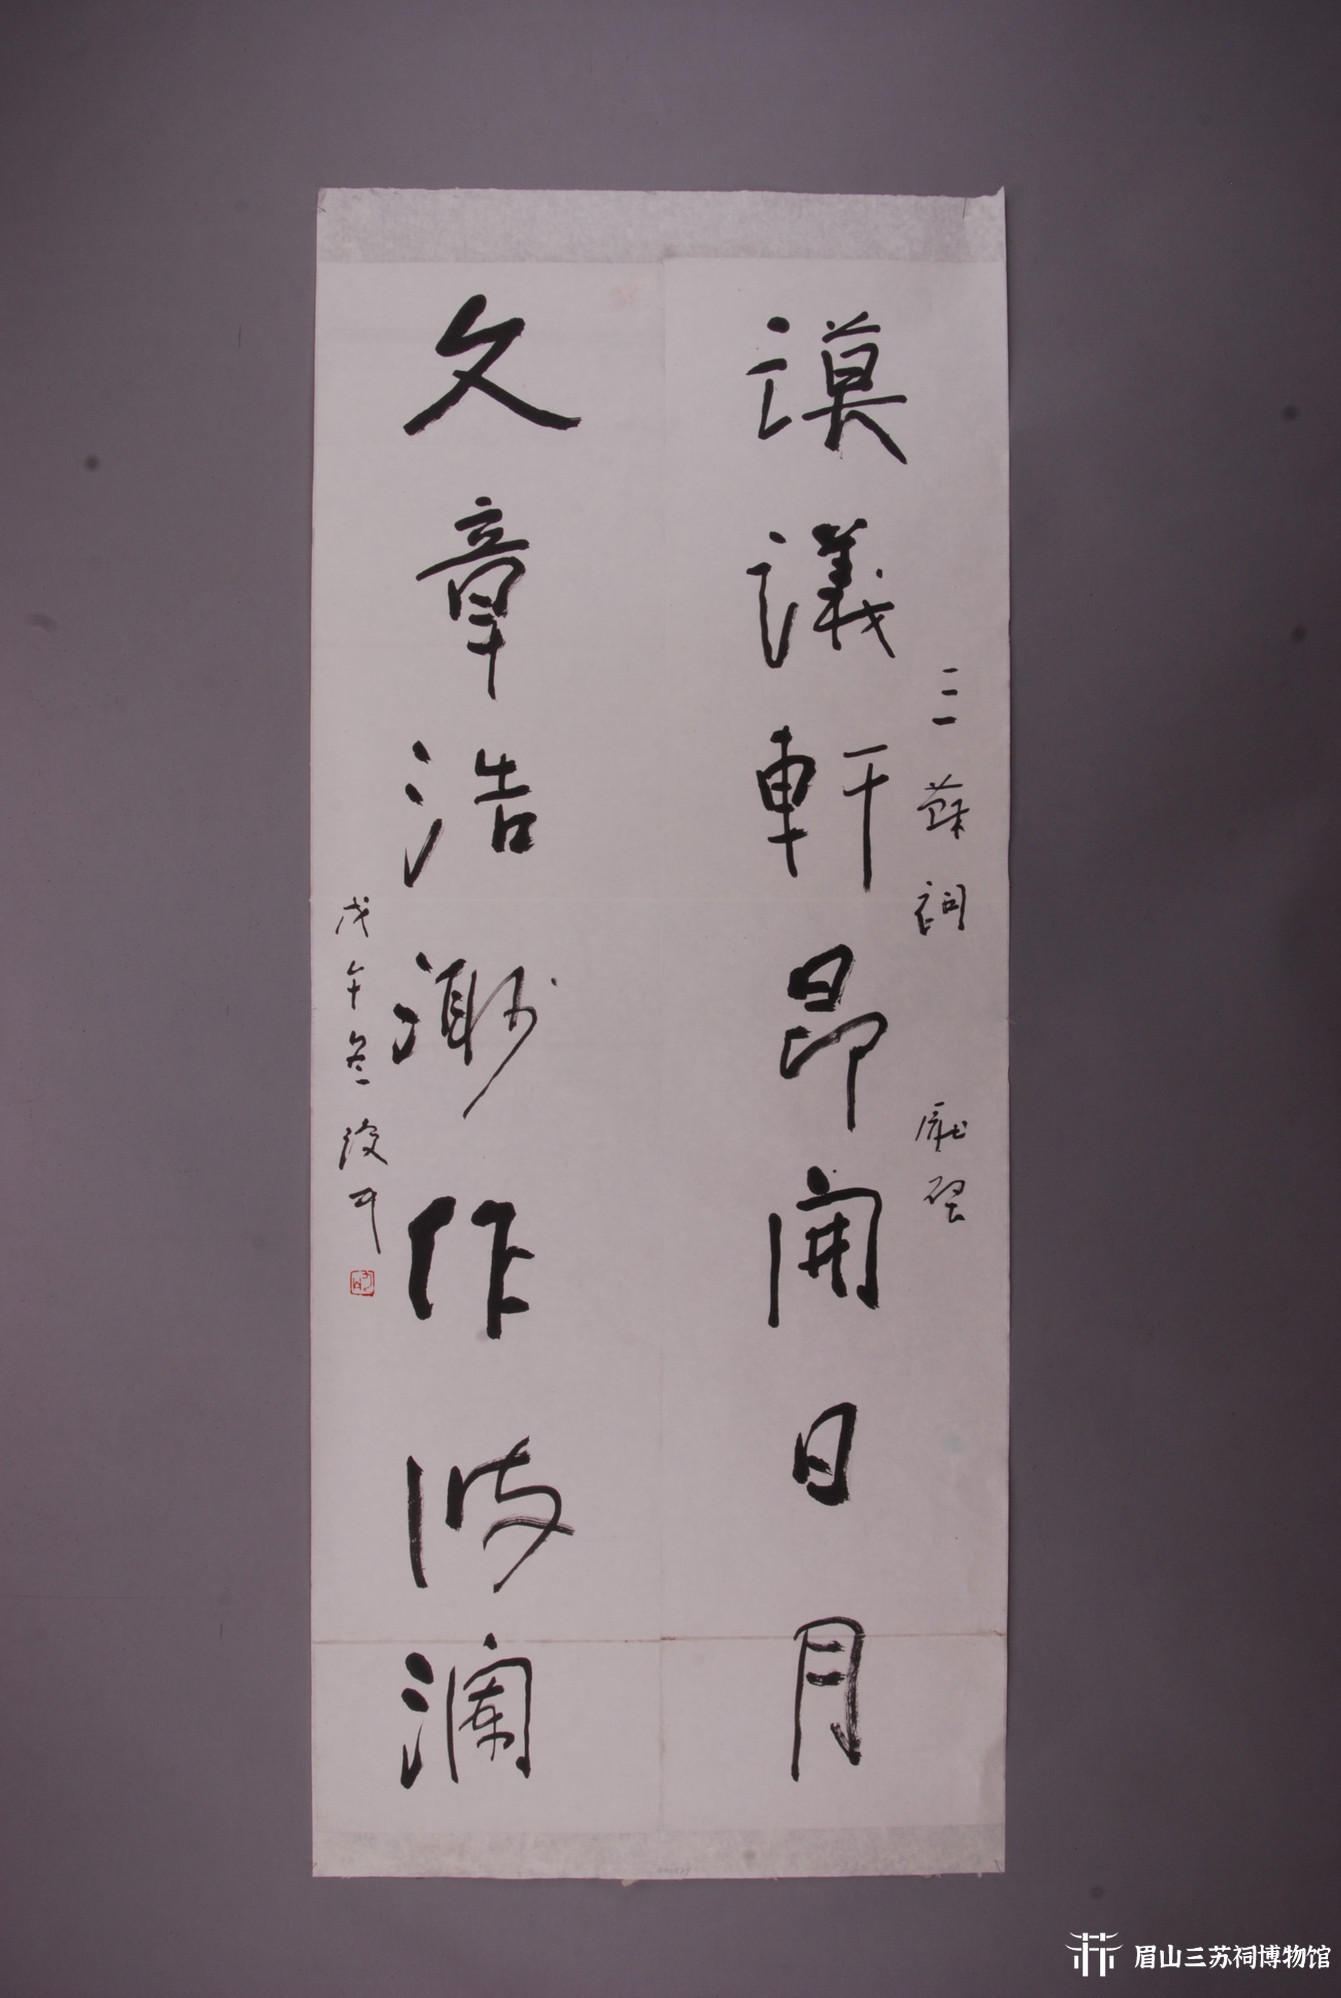 謨議軒昂開日月
三蘇祠 
文章浩渺作波瀾
戊午冬
眉山三苏祠博物馆